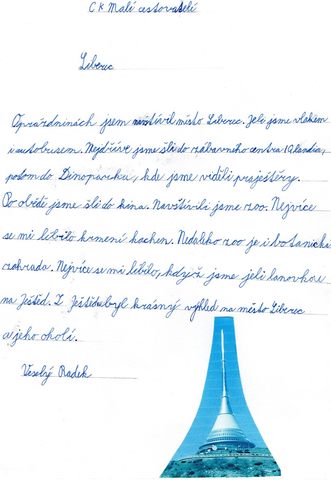 CK Malí cestovatelé
Liberec
O prázdninách jsem navštívil město Liberec. Jeli jsme vlakem
i autobusem. Nejdříve jsme šli do zábavního centra IQlandia,
potom do Dinoparku, kde jsme viděli praještěry.
Po obědě jsme šli do kina. Navštívili jsme zoo. Nejvíce
se mi líbilo krmení kachen. Nedaleko zoo je i botanická
zahrada. Nejvíce se mi líbilo, když jsme jeli lanovkou
na Ještěd. Z Ještědu byl krásný výhled na město Liberec
a jeho okolí.
Veselý Radek